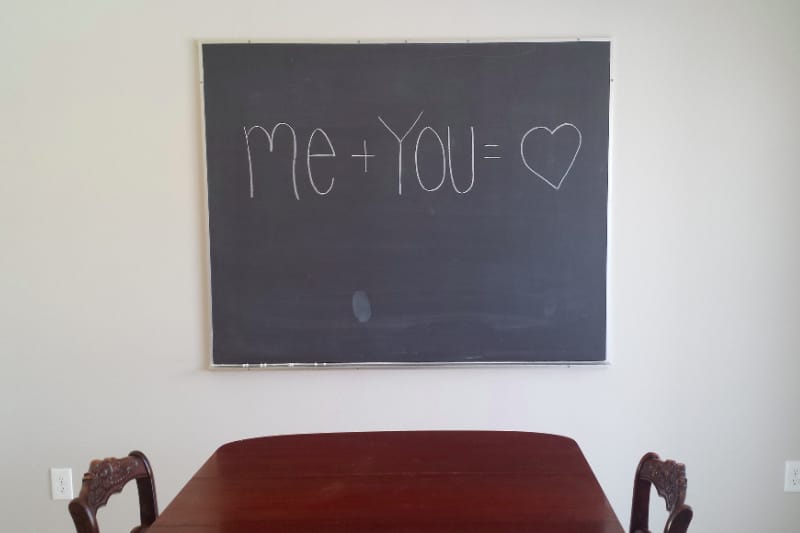 me + You = ♡